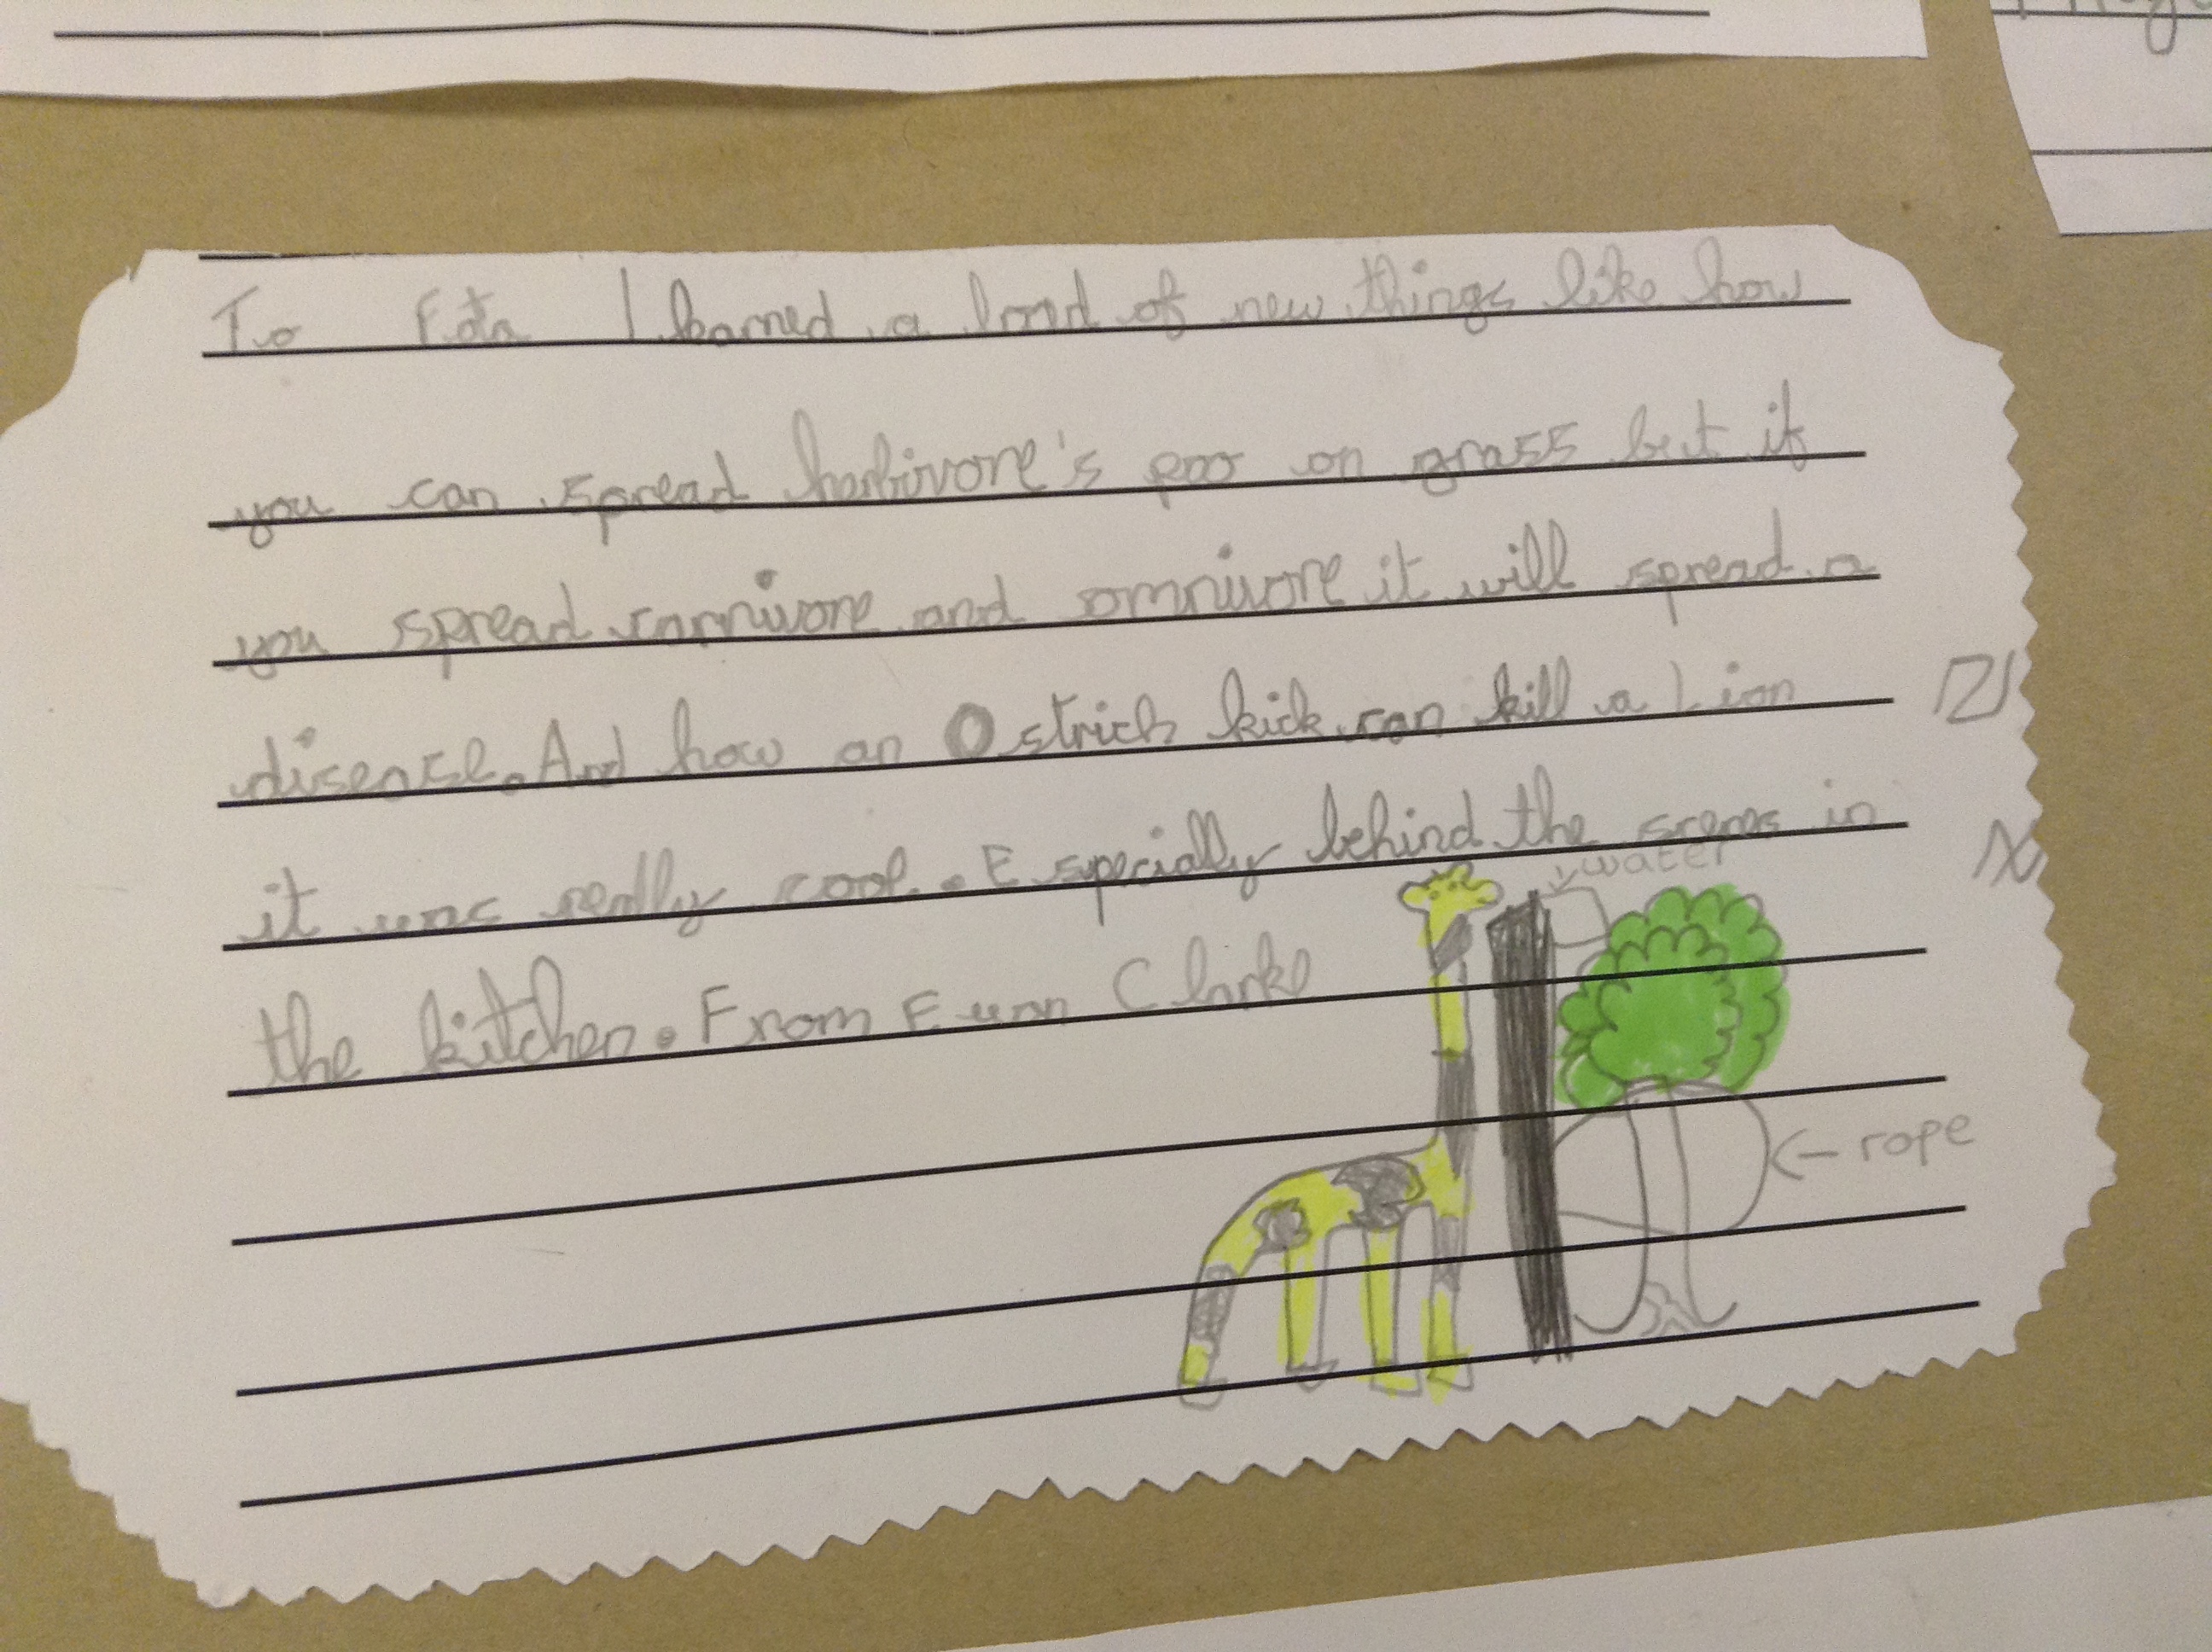 To Fota I learned a load of new things like how
you can spread herbivore's poo on grass but if
you spread carnivore and omnivore it will spread a
disease. And how an Ostrich kick can kill a Lion
it was really cool. Especially behind the scenes in
water
the kitchen. From Euan Clarke
rope